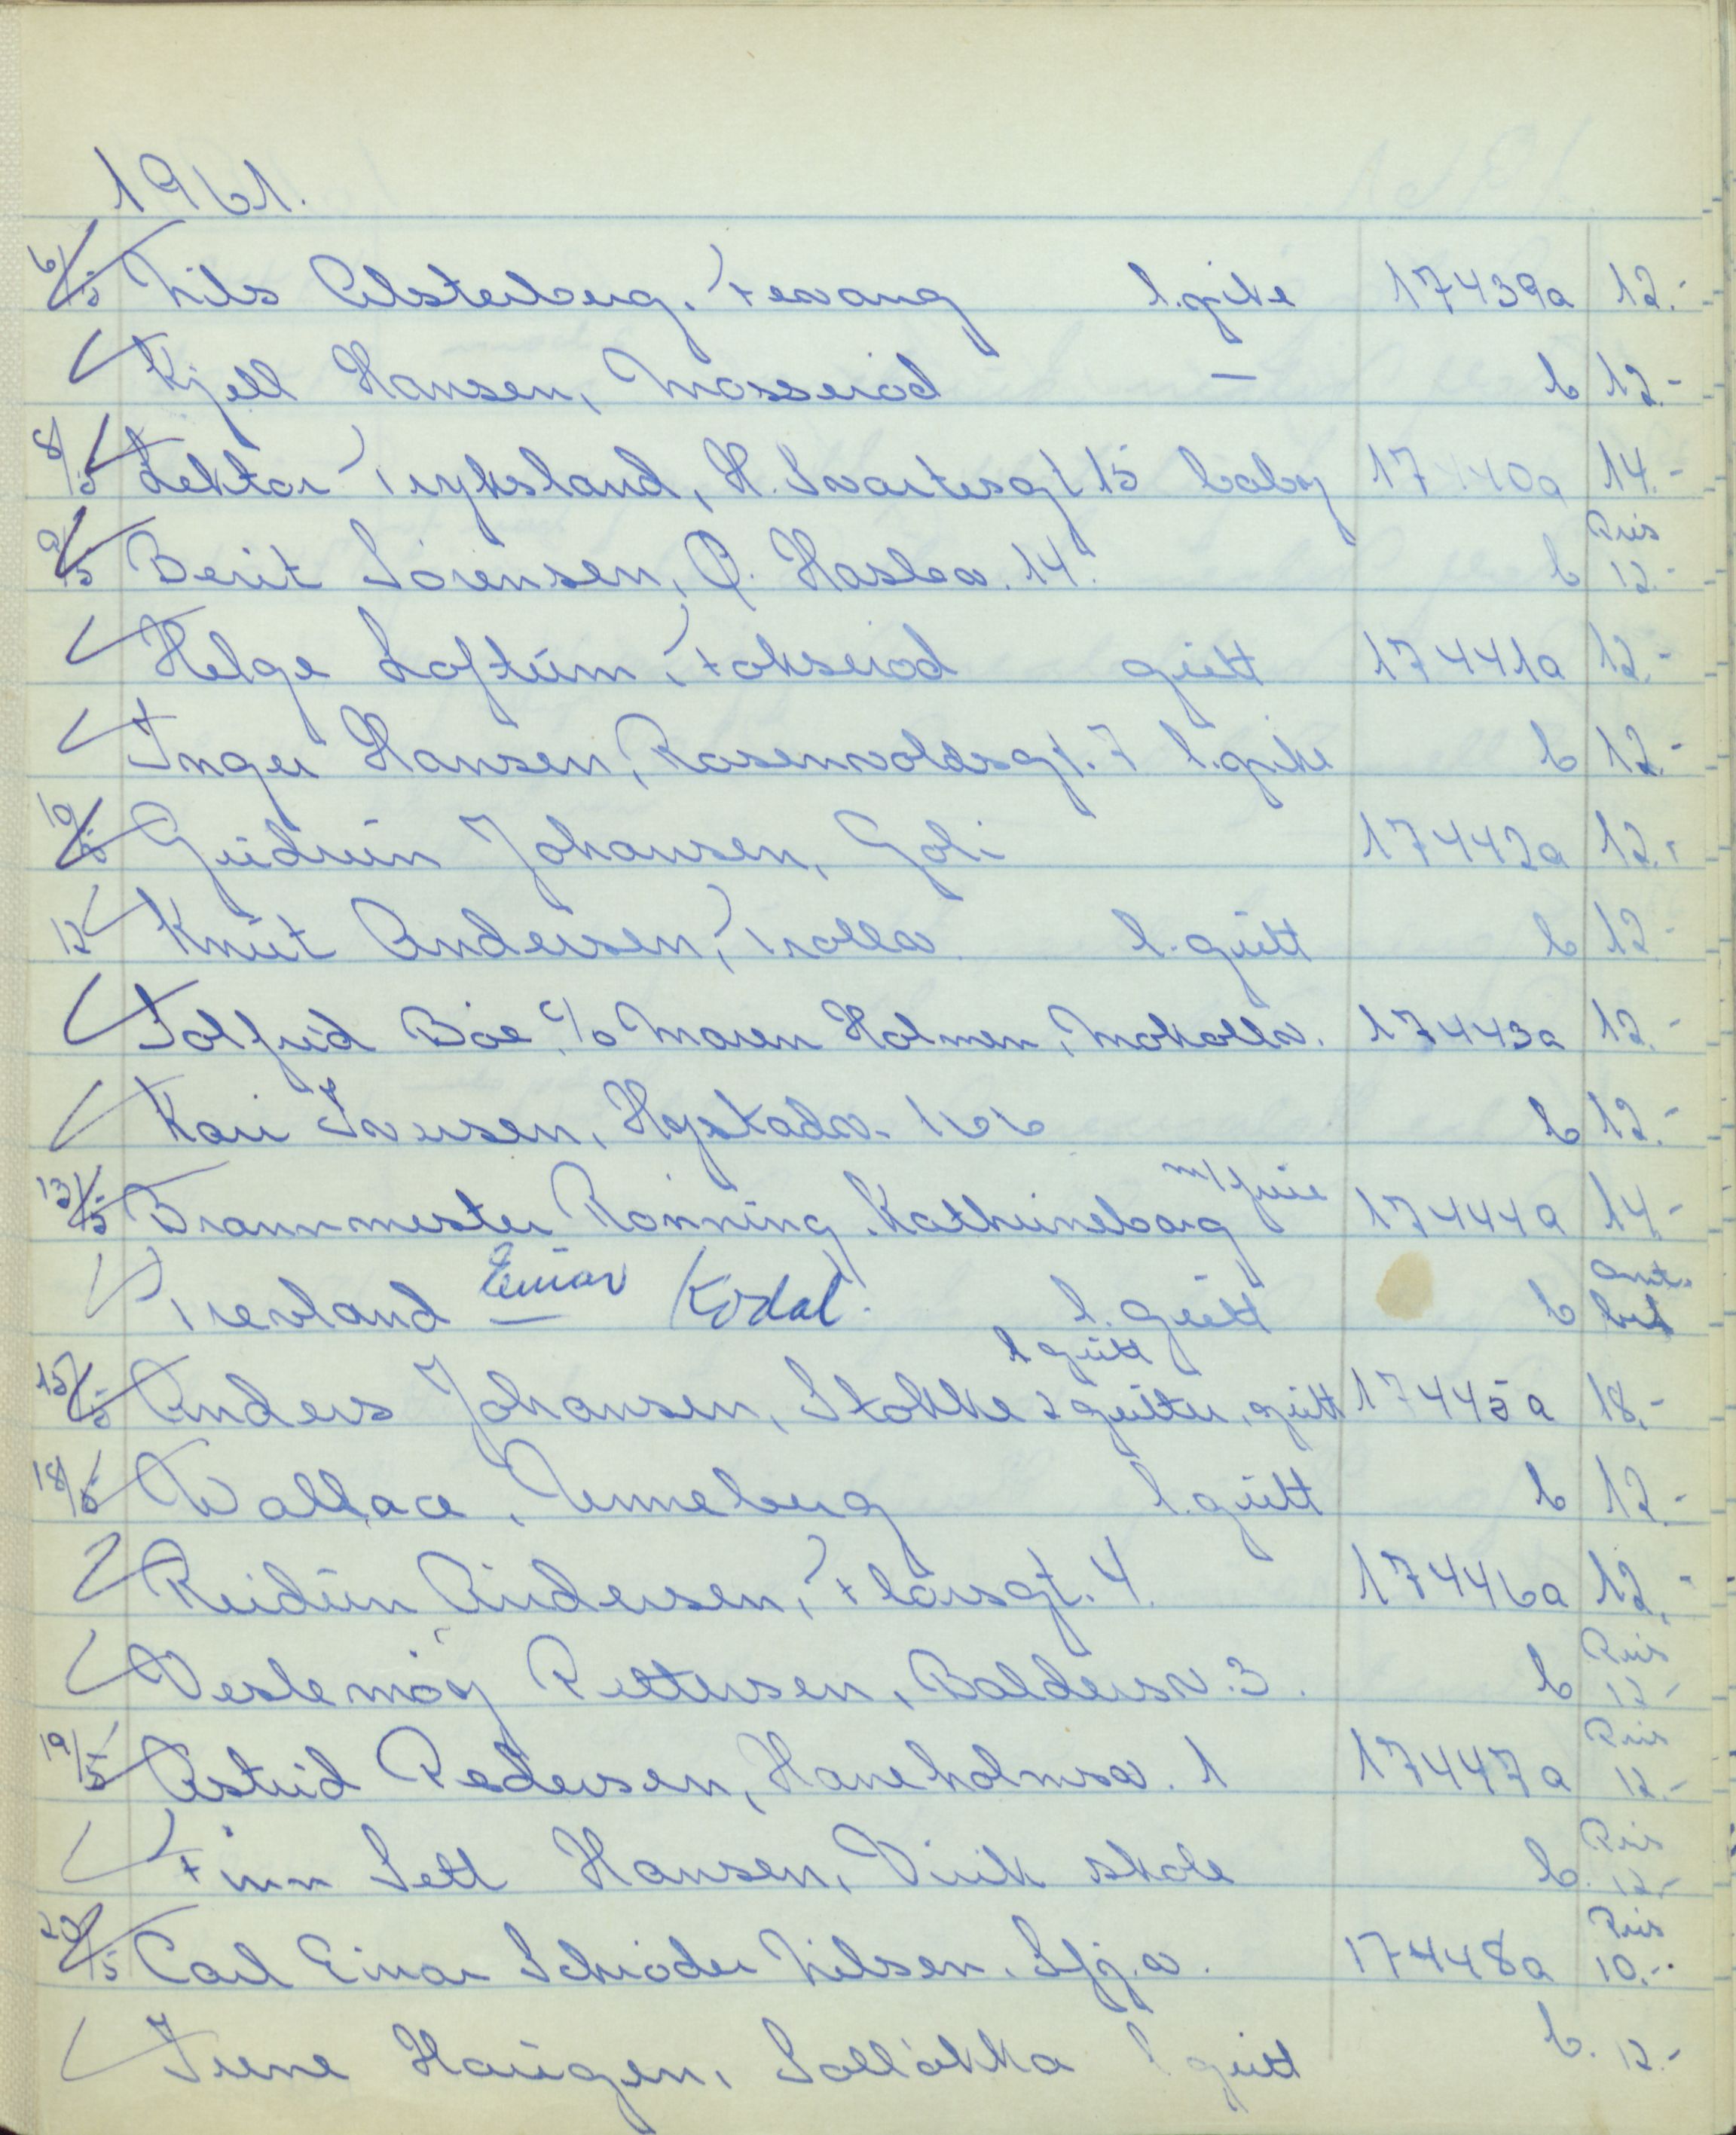 1961.
6/5 Nils Alsterberg, Fevang l.pike 17439a 12.-
Kjell Hansen, Mosserød — b 12.-
8/5 Lektor Tryksland, H. Svartesgt 15 baby 17440a 14.-
Pris
9/5 Berit Sörensen, P. Haslev. 14. b 12.-
Helge Loftum, Fokserød gutt 17441a 12.-
Inger Hansen, Rosenvoldsgt. 7 l.pike b 12.-
10/5 Gudrun Johansen, Goli 17442a 12.-
12 Knut Andersen, Trollv. l.gutt b 12.-
Solfrid Böe, c/o Maren Holmen, Mokollv. 17443a 12.-
Kari Iversen, Hystadv. 166 b 12.-
m/frue
13/5 Brannmester Rönning, Kathrineborg 17444a 14.-
Einar
Trevland — Kodal. l.gutt b bet
1 gutt
15/5 Anders Johansen, Stokke 2 gutter, gutt 17445a 18.-
18/5 Wallace, Unneberg l.gutt b 12.-
Reidun Andersen, Florsgt. 4. 17446a 12.-
Pris
Veslemöy Pettersen, Baldersv. 3. b 12.-
Pris
19/5 Astrid Pedersen, Haneholmsv. 1 17447a 12.-
Pris
Finn Sett Hansen, Virik skole b. 12.-
Pris
20/5 Carl Einar Schröder Nilsen, Sfj.v. 17448a 10.-
Irene Haugen, Solløkka l gutt b. 12.-